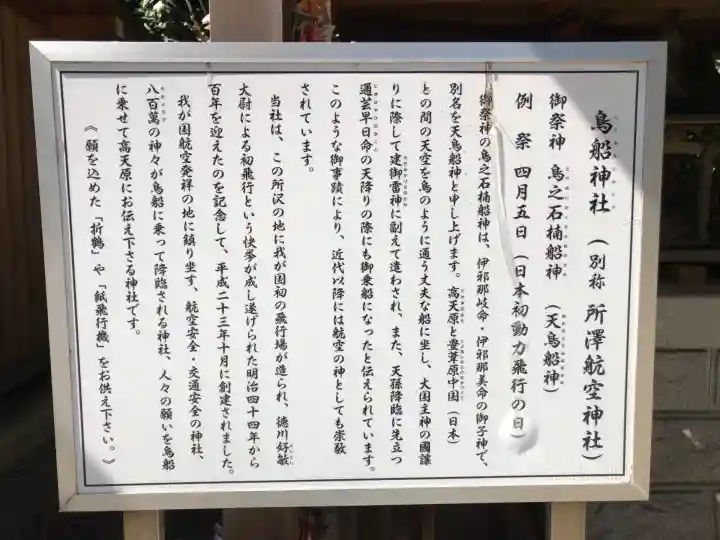 鳥船神社 （別称 所澤航空神社）
御祭神 鳥之石楠船神 （天鳥船神）
例祭 四月五日（日本初動力飛行の日）
御祭神の鳥之石楠船神は、伊邪那岐命・伊邪那美命の御子神で、
別名を天鳥船神と申し上げます。高天原と豊葦原中国（日本）
との間の天空を鳥のように通う丈夫な船に坐し、大国主神の國譲
りに際して建御雷神に副えて遣わされ、また、天孫降臨に先立つ
邇芸早日命の天降りの際にも御乗船になったと伝えられています。
このような御事蹟により、近代以降には航空の神としても崇敬
されています。
当社は、この所沢の地に我が国初の飛行場が造られ、徳川好敏
大尉による初飛行という快挙が成し遂げられた明治四十四年から
百年を迎えたのを記念して、平成二十三年十月に創建されました。
我が国航空発祥の地に鎮り坐す、航空安全・交通安全の神社、
八百萬の神々が鳥船に乗って降臨される神社、人々の願いを鳥船
に乗せて高天原にお伝え下さる神社です。
《願を込めた「折鶴」や「紙飛行機」をお供え下さい。》